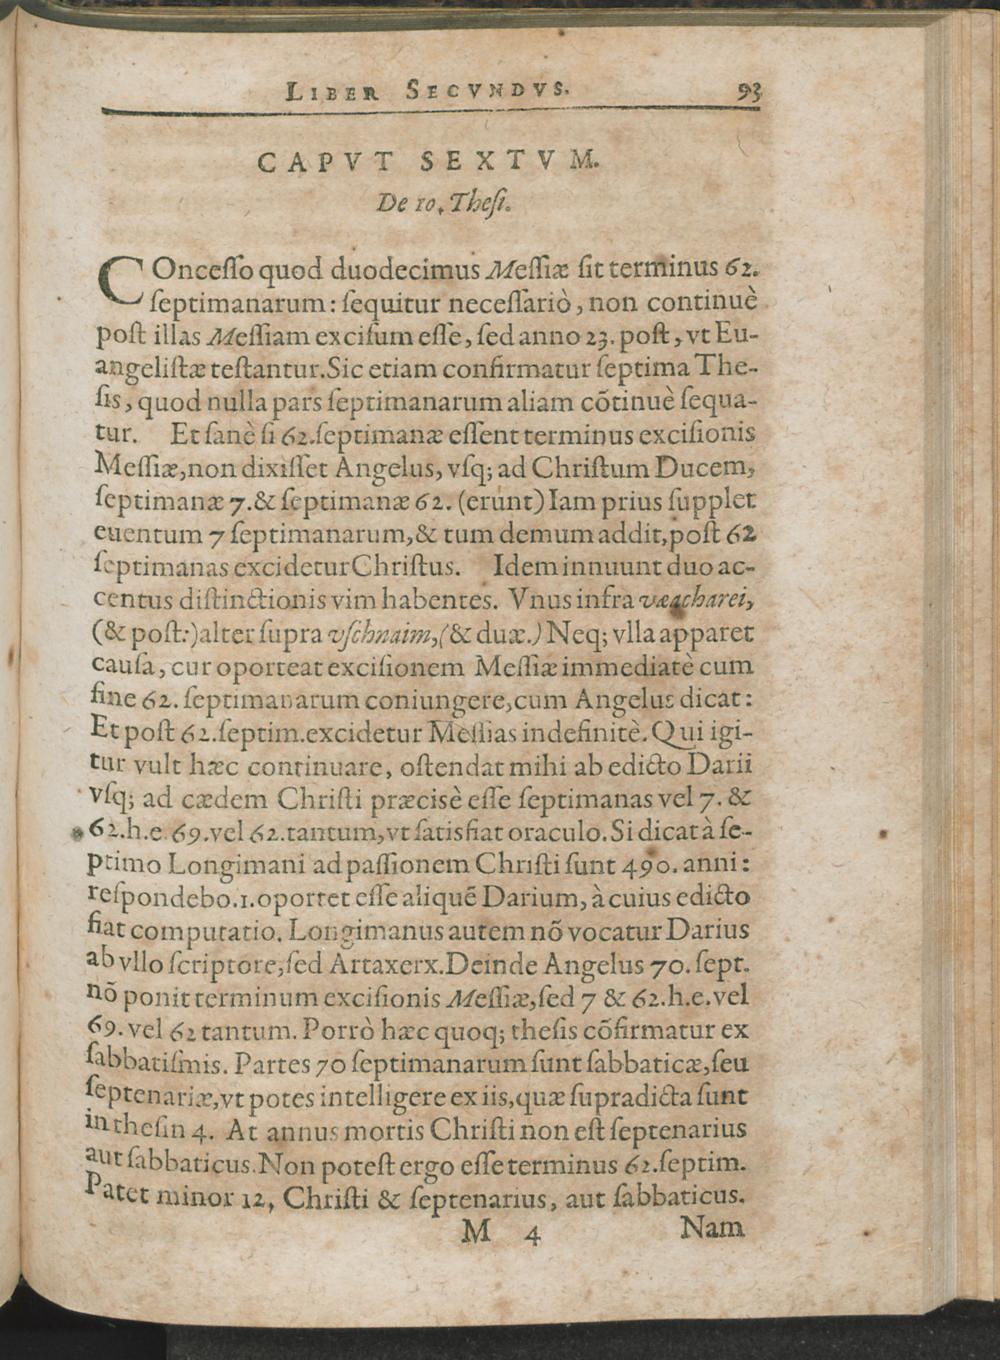 LIBER SECVNDVS. 93
CAPVT SEXTVM.
De 10. Thesi.
COnceſſo quod duodecimus Meſſiæ ſit terminus 62.
ſeptimanarum: ſequitur neceſſariò, non continuè
poſt illas Meſſiam exciſum eſſe, ſed anno 23. poſt, vt Eu-
angeliſtæ teſtantur. Sic etiam confirmatur ſeptima The-
ſis, quod nulla pars ſeptimanarum aliam cõtinuè ſequa-
tur. Et ſanè ſi 62. ſeptimanæ eſſent terminus exciſionis
Meſſiæ, non dixiſſet Angelus, vſq; ad Chriſtum Ducem,
ſeptimanæ 7. & ſeptimanæ 62. (erunt) Iam prius ſupplet
euentum 7 ſeptimanarum, & tum demum addit, poſt 62
ſeptimanas excidetur Chriſtus. Idem innuunt duo ac-
centus diſtinctionis vim habentes. Vnus infra væacharei,
(& poſt:) alter ſupra vſchnaim, (& duæ.) Neq; vlla apparet
cauſa, cur oporteat exciſionem Meſſiæ immediatè cum
fine 62. ſeptimanarum coniungere, cum Angelus dicat:
Et poſt 62. ſeptim. excidetur Meſſias indefinitè. Qui igi-
tur vult hæc continuare, oſtendat mihi ab edicto Darii
vſq; ad cædem Chriſti præcisè eſſe ſeptimanas vel 7. &
62. h. e. 69. vel 62. tantum, vt ſatisfiat oraculo. Si dicat à ſe-
ptimo Longimani ad paſſionem Chriſti ſunt 490. anni:
reſpondebo. 1. oportet eſſe aliquẽ Darium, à cuius edicto
fiat computatio. Longimanus autem nõ vocatur Darius
ab vllo ſcriptore, ſed Artaxerx. Deinde Angelus 70. ſept.
nõ ponit terminum exciſionis Meſſiæ, ſed 7 & 62. h. e. vel
69. vel 62 tantum. Porrò hæc quoq; theſis cõfirmatur ex
ſabbatiſmis. Partes 70 ſeptimanarum ſunt ſabbaticæ, ſeu
ſeptenariæ, vt potes intelligere ex iis, quæ ſupradicta ſunt
in theſin 4. At annus mortis Chriſti non eſt ſeptenarius
aut ſabbaticus. Non poteſt ergo eſſe terminus 62. ſeptim.
Patet minor 12, Chriſti & ſeptenarius, aut ſabbaticus.
M 4 Nam